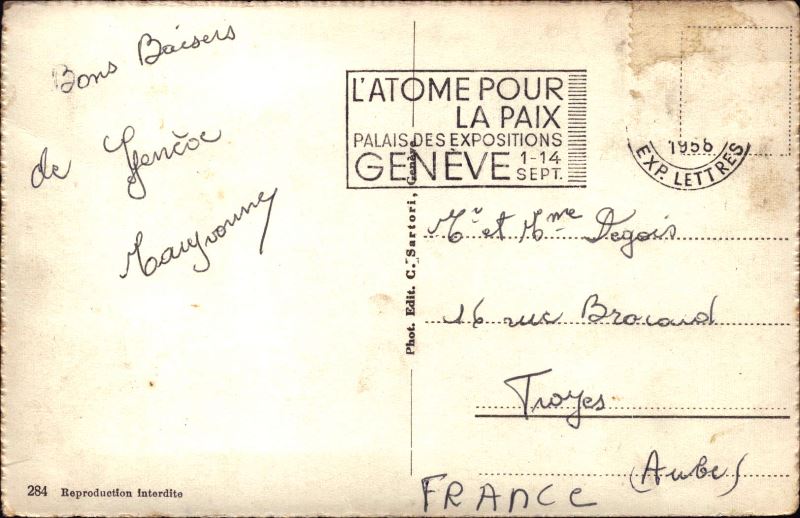 Bons Baisers
de Genève
Maryvonne
L'ATOME POUR
LA PAIX
PALAIS DES EXPOSITIONS
GENÈVE 1-14 SEPT.
1958
EXP. LETTRES
Phot. Edit. C. Sartori, Genève
Mr et Mme Degois
16 rue Brocard
Troyes
(Aube)
FRANCE
284 Reproduction interdite